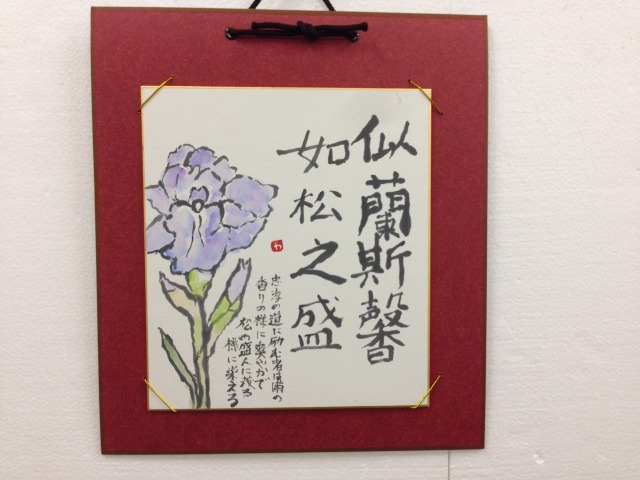 似蘭斯馨
如松之盛
忠孝の道に励む者は蘭の
香りの様に爽やかで
松の盛んに茂る
様に栄える
わ